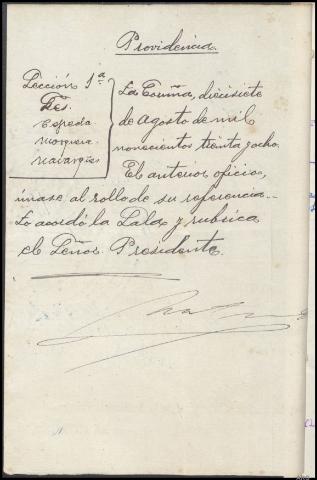 Providencia.
Sección 1ª
Tres.
Espeda
Mosquera
Navarques
La Coruña, diecisiete
de agosto de mil
novecientos treinta y ocho.
El anterior oficio,
únase al rollo de su referencia.
Lo acordó la Sala y rubrica
el Señor Presidente